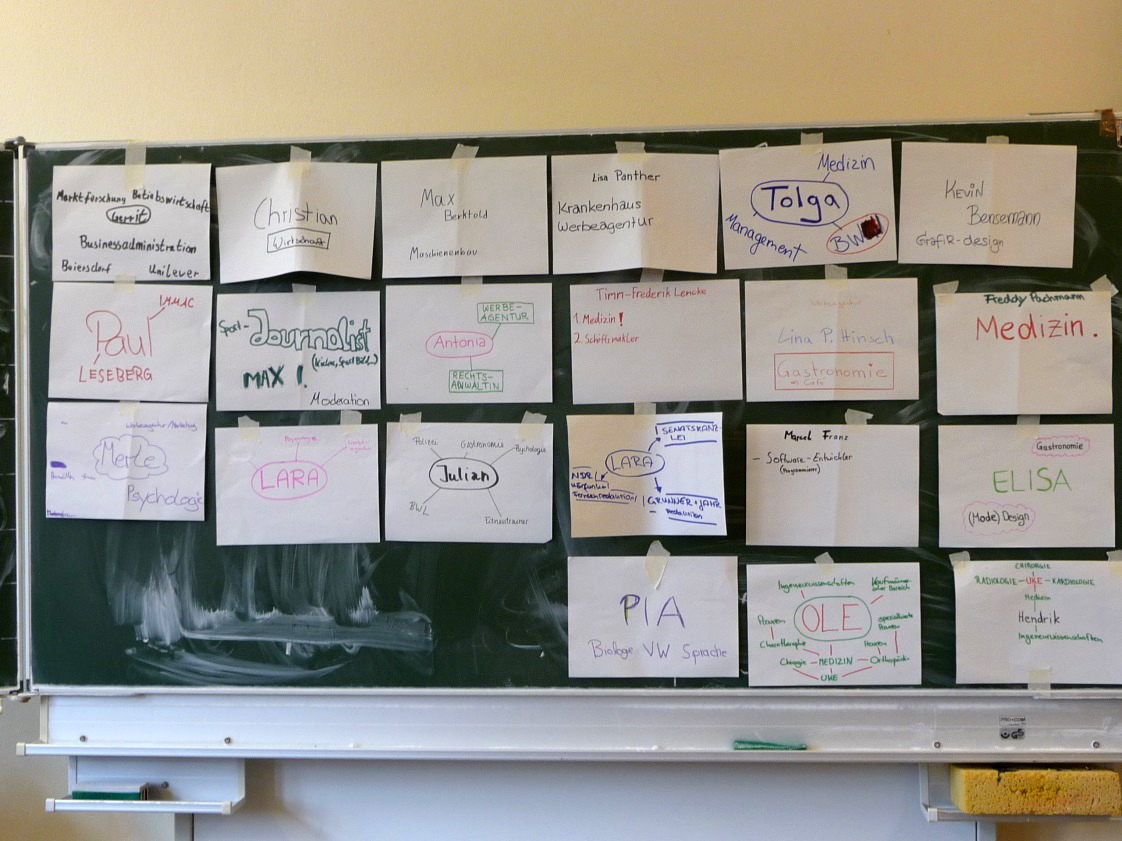 Marktforschung Betriebswirtschaft
Gerrit
Businessadministration
Beiersdorf Unilever
Christian
Wirtschaft
Max
Berktold
Maschienenbau
Lisa Panther
Krankenhaus
Werbeagentur
Medizin
Tolga
Management
BW
KEViN
Bensemann
Grafik-design
IMMAC
Paul
LESEBERG
Sport-
Journalist
MAX !
Moderation
WERBE-
AGENTUR
Antonia
RECHTS-
ANWALTIN
Timn-Frederik Lencke
1. Medizin!
2. Schiffsmakler
Lina P. Hinsch
Gastronomie
Freddy Puchmann
Medizin.
Merle
Psychologie
LARA
Polizei
Gastronomie
Psychologie
Julian
BWL
Fitnesstrainer
SENATSKANZ-
LEI
LARA
NDR
GRUNNER + JAHR
redaktion
Marcel Franz
- Software-Entwickler
(Programmierer)
Gastronomie
ELISA
(Mode) Design
PIA
Biologe VW Sprache
Ingenieurwissenschaften
OLE
Chirurgie
MEDIZIN
Orthopädie
UKE
CHIRURGIE
RADIOLOGIE - UKE - KARDIOLOGIE
Medizin
Hendrik
Ingenieurwissenschaften